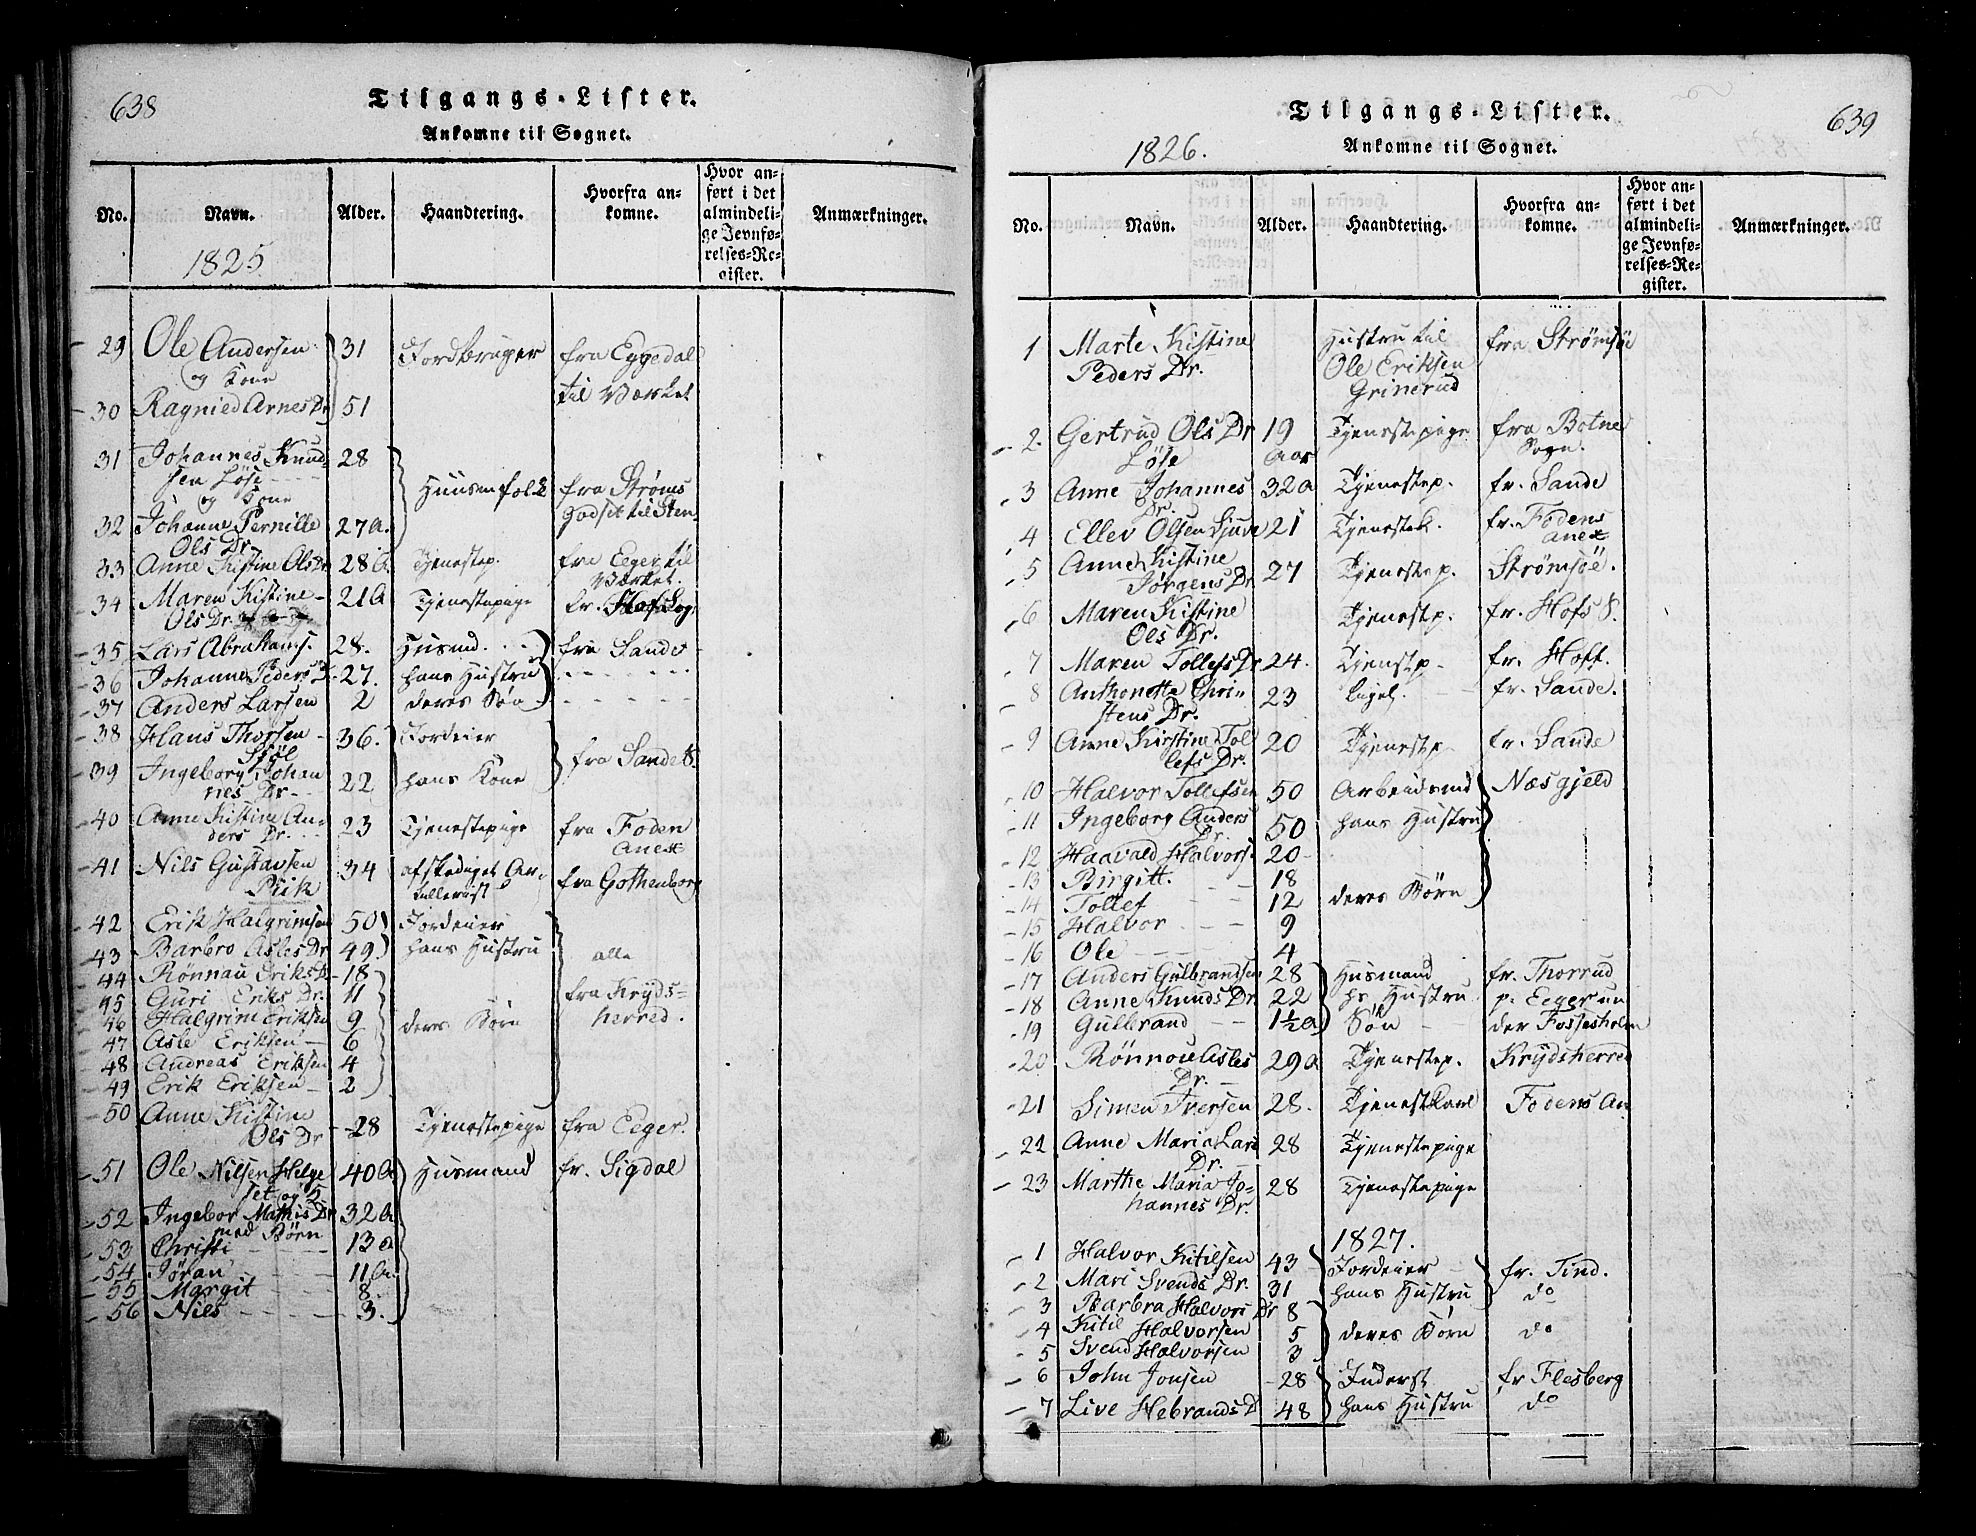 638
Tilgangs-Lister.
Ankomne til Sognet.
No. Navn. Alder. Haandtering. Hvorfra ankomne. Hvor anført i det almindelige Jevnførelses-Register. Anmærkninger.
1825
29 Ole Andersen 31 Jordbruger fra Eggedal
og Kone til Værket
30 Ragnied Arnes Dr 51
31 Johannes Knud- 28
sen Löse Huusmfolk fra Strøms
og Kone Godset til Sten-
32 Johanne Pernille 27 A.
Ols Dr.
33 Anne Kistine Ols Dr 28 A. Tjenestep. fra Eger til
Værket.
34 Maren Kistine 21 A Tjenestepige fr. Hof Sog
Ols Dr.
35 Lars Abrahams. 28. Husmd. fra Sande
36 Johanne Peders Dr. 27. hans Hustru
37 Anders Larsen 2 deres Søn
38 Hans Thorsen 36. Jordeier
fra Sande S.
39 Ingeborg Johan 22 hans Kone
nes Dr
40 Anne Kistine An- 23 Tjenestepige fra Foden
ders Dr. Anex
41 Nils Gustavsen 34 afskediget Ar- fra Gothenborg
tillerist
42 Erik Halgrimsen 50 Jordeier
43 Barbro Asles Dr 49 hans Hustru alle
44 Rönnau Eriks D. 18
45 Guri Eriks Dr. 11 fra Kryds-
46 Halgrim Eriksen 9 deres Børn herred.
47 Asle Eriksen 6
48 Andreas Eriksen 4
49 Erik Eriksen 2
50 Anne Kistine
Ols Dr 28 Tjenestepige fra Eeger.
51 Ole Nilsen Helge 40 A Husmand fr. Sigdal
52 Ingebor Mathis Dr 32 A.
med Børn
53 Christi 13 a
54 Jöran 11 a.
55 Margit 8.
56 Nils 3.
639
Tilgangs-Lister.
Ankomne til Sognet.
1826.
No. Navn. Alder. Haandtering. Hvorfra ankomne. Hvor anført i det almindelige Jevnførelses-Register. Anmærkninger.
1 Marte Kistine Hustru til fra Strømsöe
Peders Dr. Ole Eriksen
Grinerud
2. Gertrud Ols Dr 19 Tjenestepige fra Botne
Löse Aar Sogn.
3 Anne Johannes 32 a Tjenestep. fr. Sande
Dr.
4 Ellev Olsen Ljuve 21 Tjenestek. fr. Fodens
anex
5 Anne Kistine
Jörgens Dr 27 Tjenestep. Strømsöe.
6 Maren Kistine Tjenestep. fr. Hofs S.
Ols Dr.
7 Maren Tollefs Dr 24. Tjenstp fr. Hoff.
8 Anthonette Chri- 23 Ligel. fr. Sande.
stens Dr.
9 Anne Kirstine Tol 20 Tjenestp fr. Sande
lefs Dr.
10 Halvor Tollefsen 50 Arbeidsmd Næsgjeld
11 Ingeborg Anders 50 hans Hustru
Dr.
12 Haavald Halvors. 20
13 Birgitt. 18
14 Tollef 12 deres Børn
15 Halvor 9
16 Ole 4
17 Anders Gulbrandsen 28 Husmand fr. Thorrud
18 Anne Knuds Dr 22 hs. Hustru p. Eeger un
19 Gulbrand 1½ a Søn der Fossesholm
20 Rönnou Asles 29 a Tjenestep. Krydsherred
Dr.
21 Simen Iversen 28. Tjenestkarl Fodens An
22 Anne Maria Lars 28 Tjenestepige
Dr.
23 Marthe Maria Jo- 28 Tjenestepige
hannes Dr.
1827.
1 Halvor Kitilsen 43 Jordeier fr. Tind.
2 Mari Svends Dr. 31 hans Hustru do
3 Barbra Halvors Dr 8
4 Kitil Halvorsen 5 deres Børn do
5 Svend Halvorsen 3
6 John Jonsen 28 Inderst fr Flesberg
7 Live Hebrands D 48 hans Hustru do